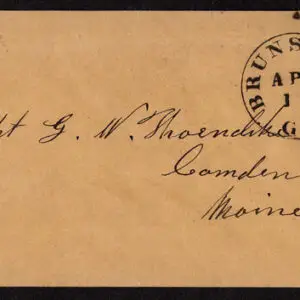 BRUNS
AP
1
G
pt G. W. Thorndike
Camden
Maine